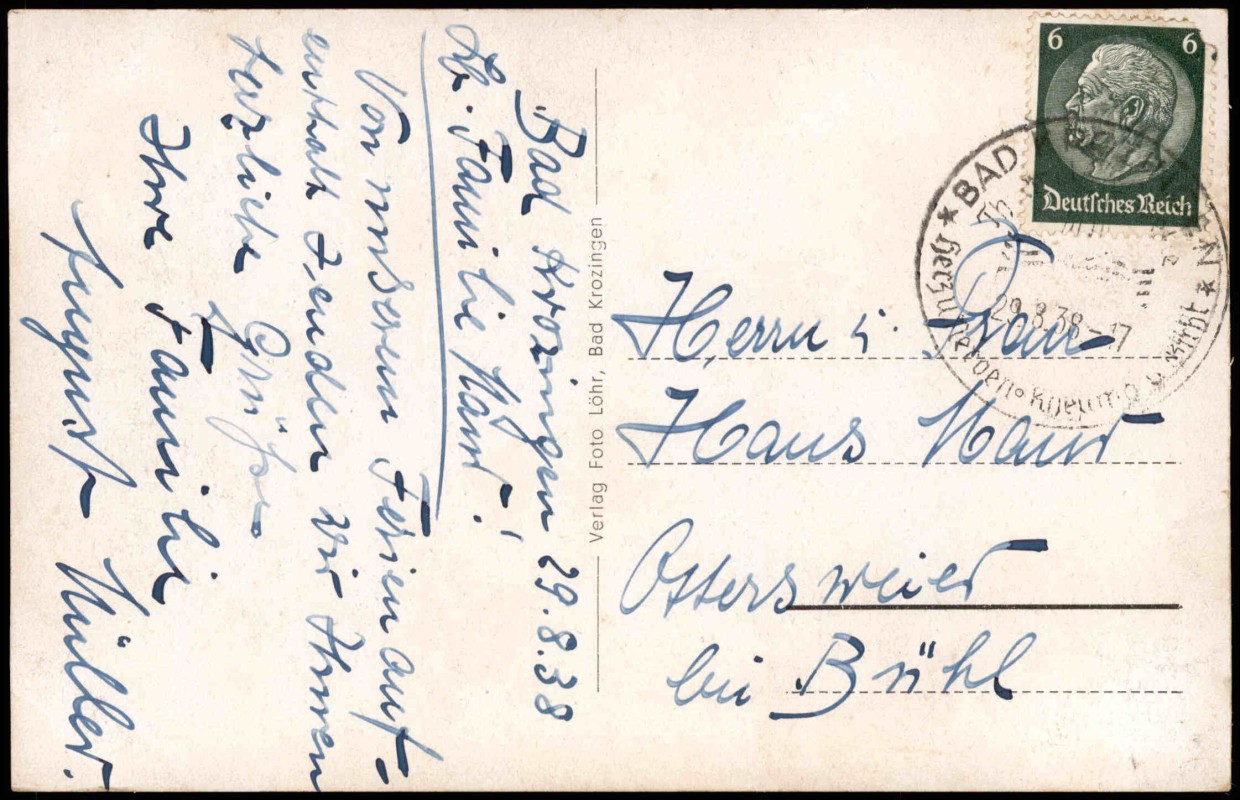 Bad Krozingen 29.8.38
Lb. Familie Maur!
Von unserem Ferienauf-
enthalt senden wir Ihnen
herzliche Grüße
Ihre Familie
August Müller.
Verlag Foto Löhr, Bad Krozingen
6 6
Deutsches Reich
★ BAD KROZINGEN ★
29.8.38-17
Herzu
Rheuma u. Gicht
Herrn u. Frau
Hans Maur
Ottersweier
bei Bühl